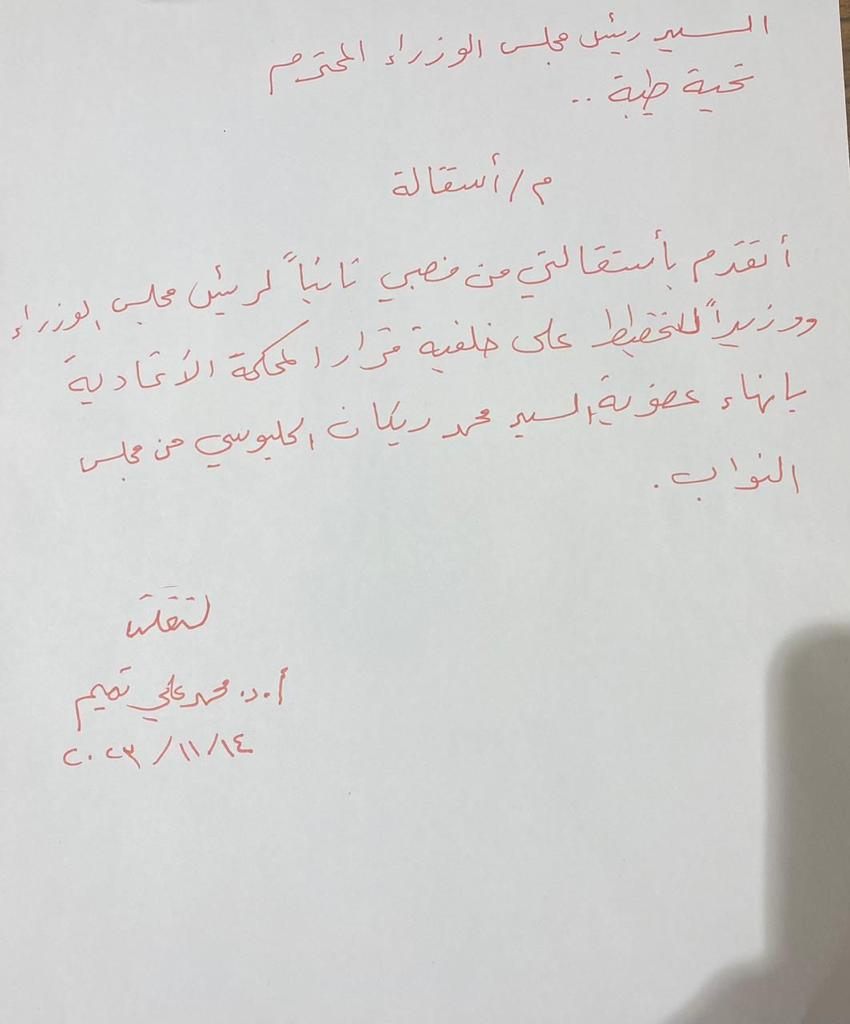 السيد رئيس مجلس الوزراء المحترم
تحية طيبة ..
م/ أستقالة
أتقدم بأستقالتي من منصبي نائباً لرئيس مجلس الوزراء
ووزيراً للتخطيط على خلفية قرار المحكمة الأتحادية
بانهاء عضوية السيد محمد ريكان الحلبوسي من مجلس
النواب .
أ.د. محمد علي تميم
٢٠٢٣/١١/١٤